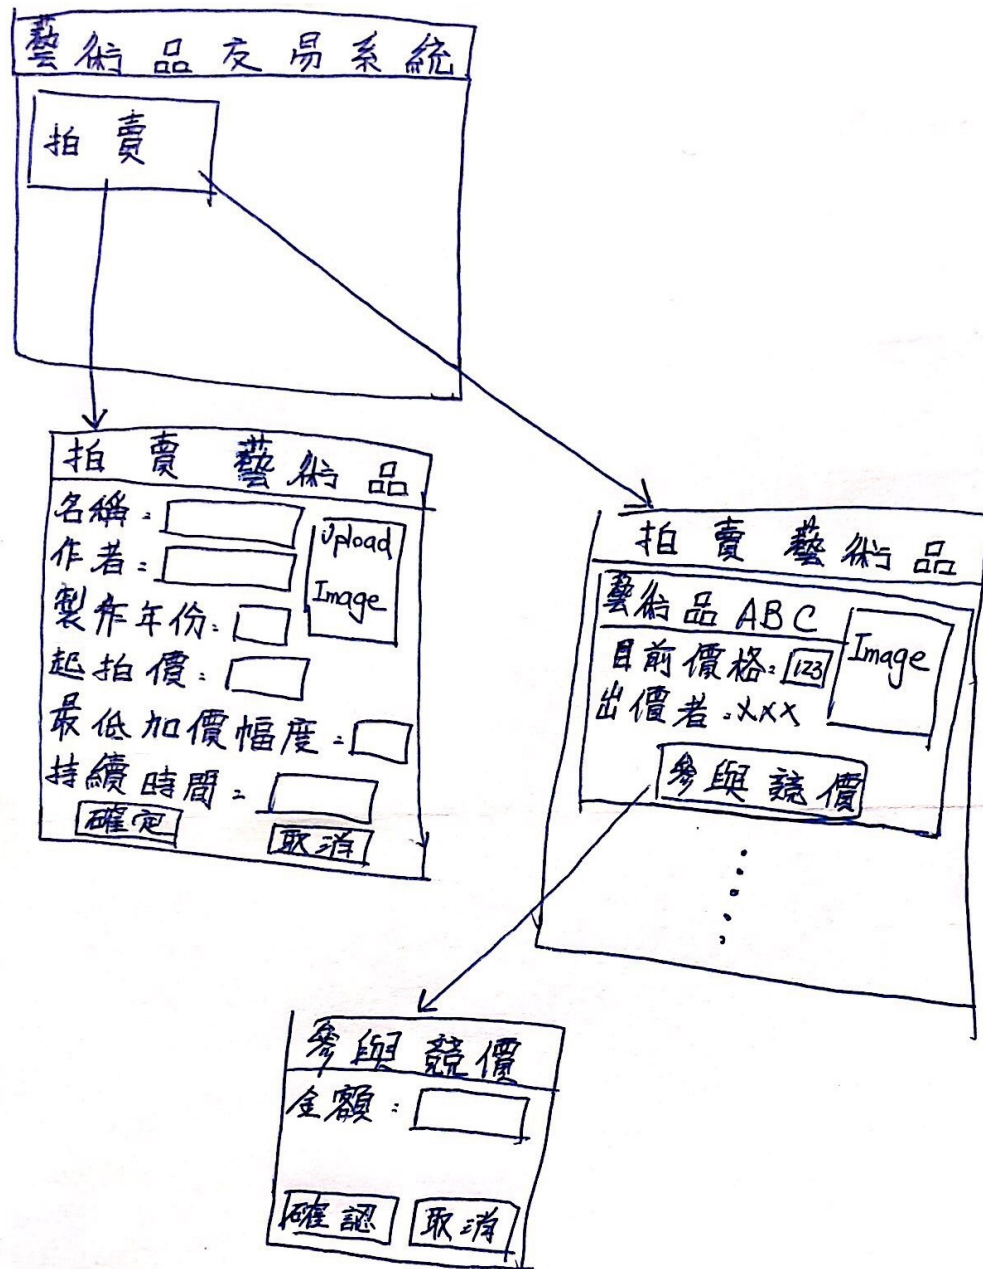 藝術品交易系統
拍賣
拍賣藝術品
名稱：
作者：
Upload
Image
製作年份：
起拍價：
最低加價幅度：
持續時間：
確定
取消
拍賣藝術品
藝術品 ABC
Image
目前價格：123
出價者：xxx
參與競價
參與競價
金額：
確認
取消